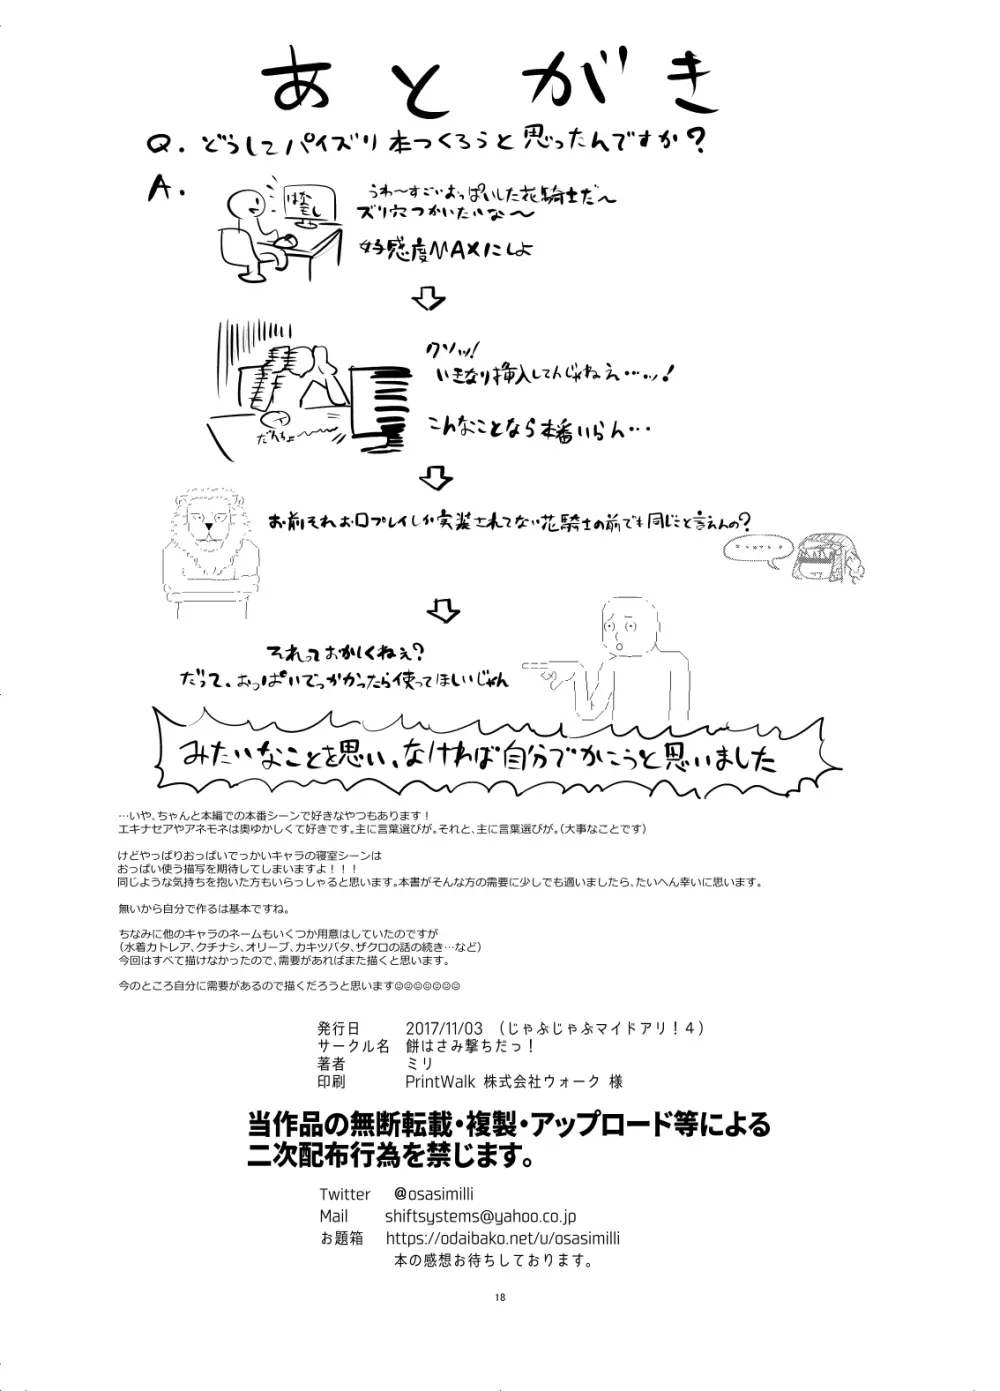 あとがき
Q. どうしてパイズリ本つくろうと思ったんですか?
A.
はなきし
うわ〜すごいおっぱいした花騎士だ〜
ズリ穴つかいたいな〜
好感度MAXにしよ
クソッ!
いきなり挿入してんじゃねぇ…ッ!
こんなことなら本番いらん…
だんちょ〜〜
お前それお口プレイしか実装されてない花騎士の前でも同じこと言えんの?
それっておかしくねぇ?
だって、おっぱいでっかかったら使ってほしいじゃん
みたいなことを思い、なければ自分でかこうと思いました
…いや、ちゃんと本編での本番シーンで好きなやつもあります!
エキナセアやアネモネは奥ゆかしくて好きです。主に言葉選びが。それと、主に言葉選びが。(大事なことです)
けどやっぱりおっぱいでっかいキャラの寝室シーンは
おっぱい使う描写を期待してしまいますよ!!!
同じような気持ちを抱いた方もいらっしゃると思います。本書がそんな方の需要に少しでも適いましたら、たいへん幸いに思います。
無いから自分で作るは基本ですね。
ちなみに他のキャラのネームもいくつか用意はしていたのですが
(水着カトレア、クチナシ、オリーブ、カキツバタ、ザクロの話の続き…など)
今回はすべて描けなかったので、需要があればまた描くと思います。
今のところ自分に需要があるので描くだろうと思います☺☺☺☺☺☺☺
発行日 2017/11/03 (じゃぶじゃぶマイドアリ!4)
サークル名 餅はさみ撃ちだっ!
著者 ミリ
印刷 PrintWalk 株式会社ウォーク 様
当作品の無断転載・複製・アップロード等による
二次配布行為を禁じます。
Twitter @osasimilli
Mail shiftsystems@yahoo.co.jp
お題箱 https://odaibako.net/u/osasimilli
本の感想お待ちしております。
18